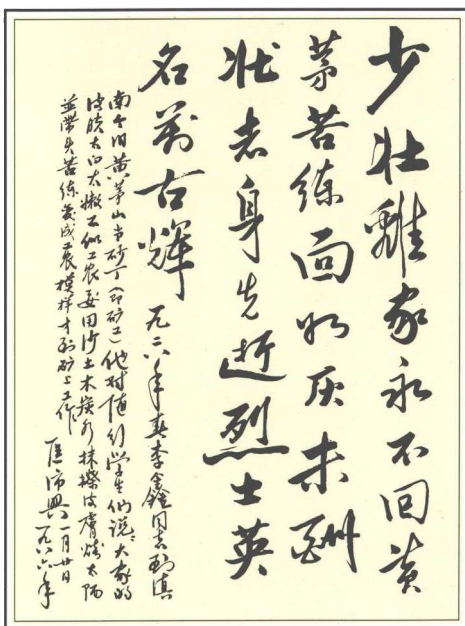 少壮離家永不回黄
茅苦练面如灰未酬
壮志身先逝烈士英
名万古辉 一九二八年春李鑫同志到滇
南个旧黄茅山当砂丁(即矿工)他对随行学生们说：大家的
皮肤太白太嫩不似工农要用沙土木炭灰抹擦皮肤烧太阳
並带头苦练变成工农模样才到矿上工作
匡沛興 一月廿日 一九八六年